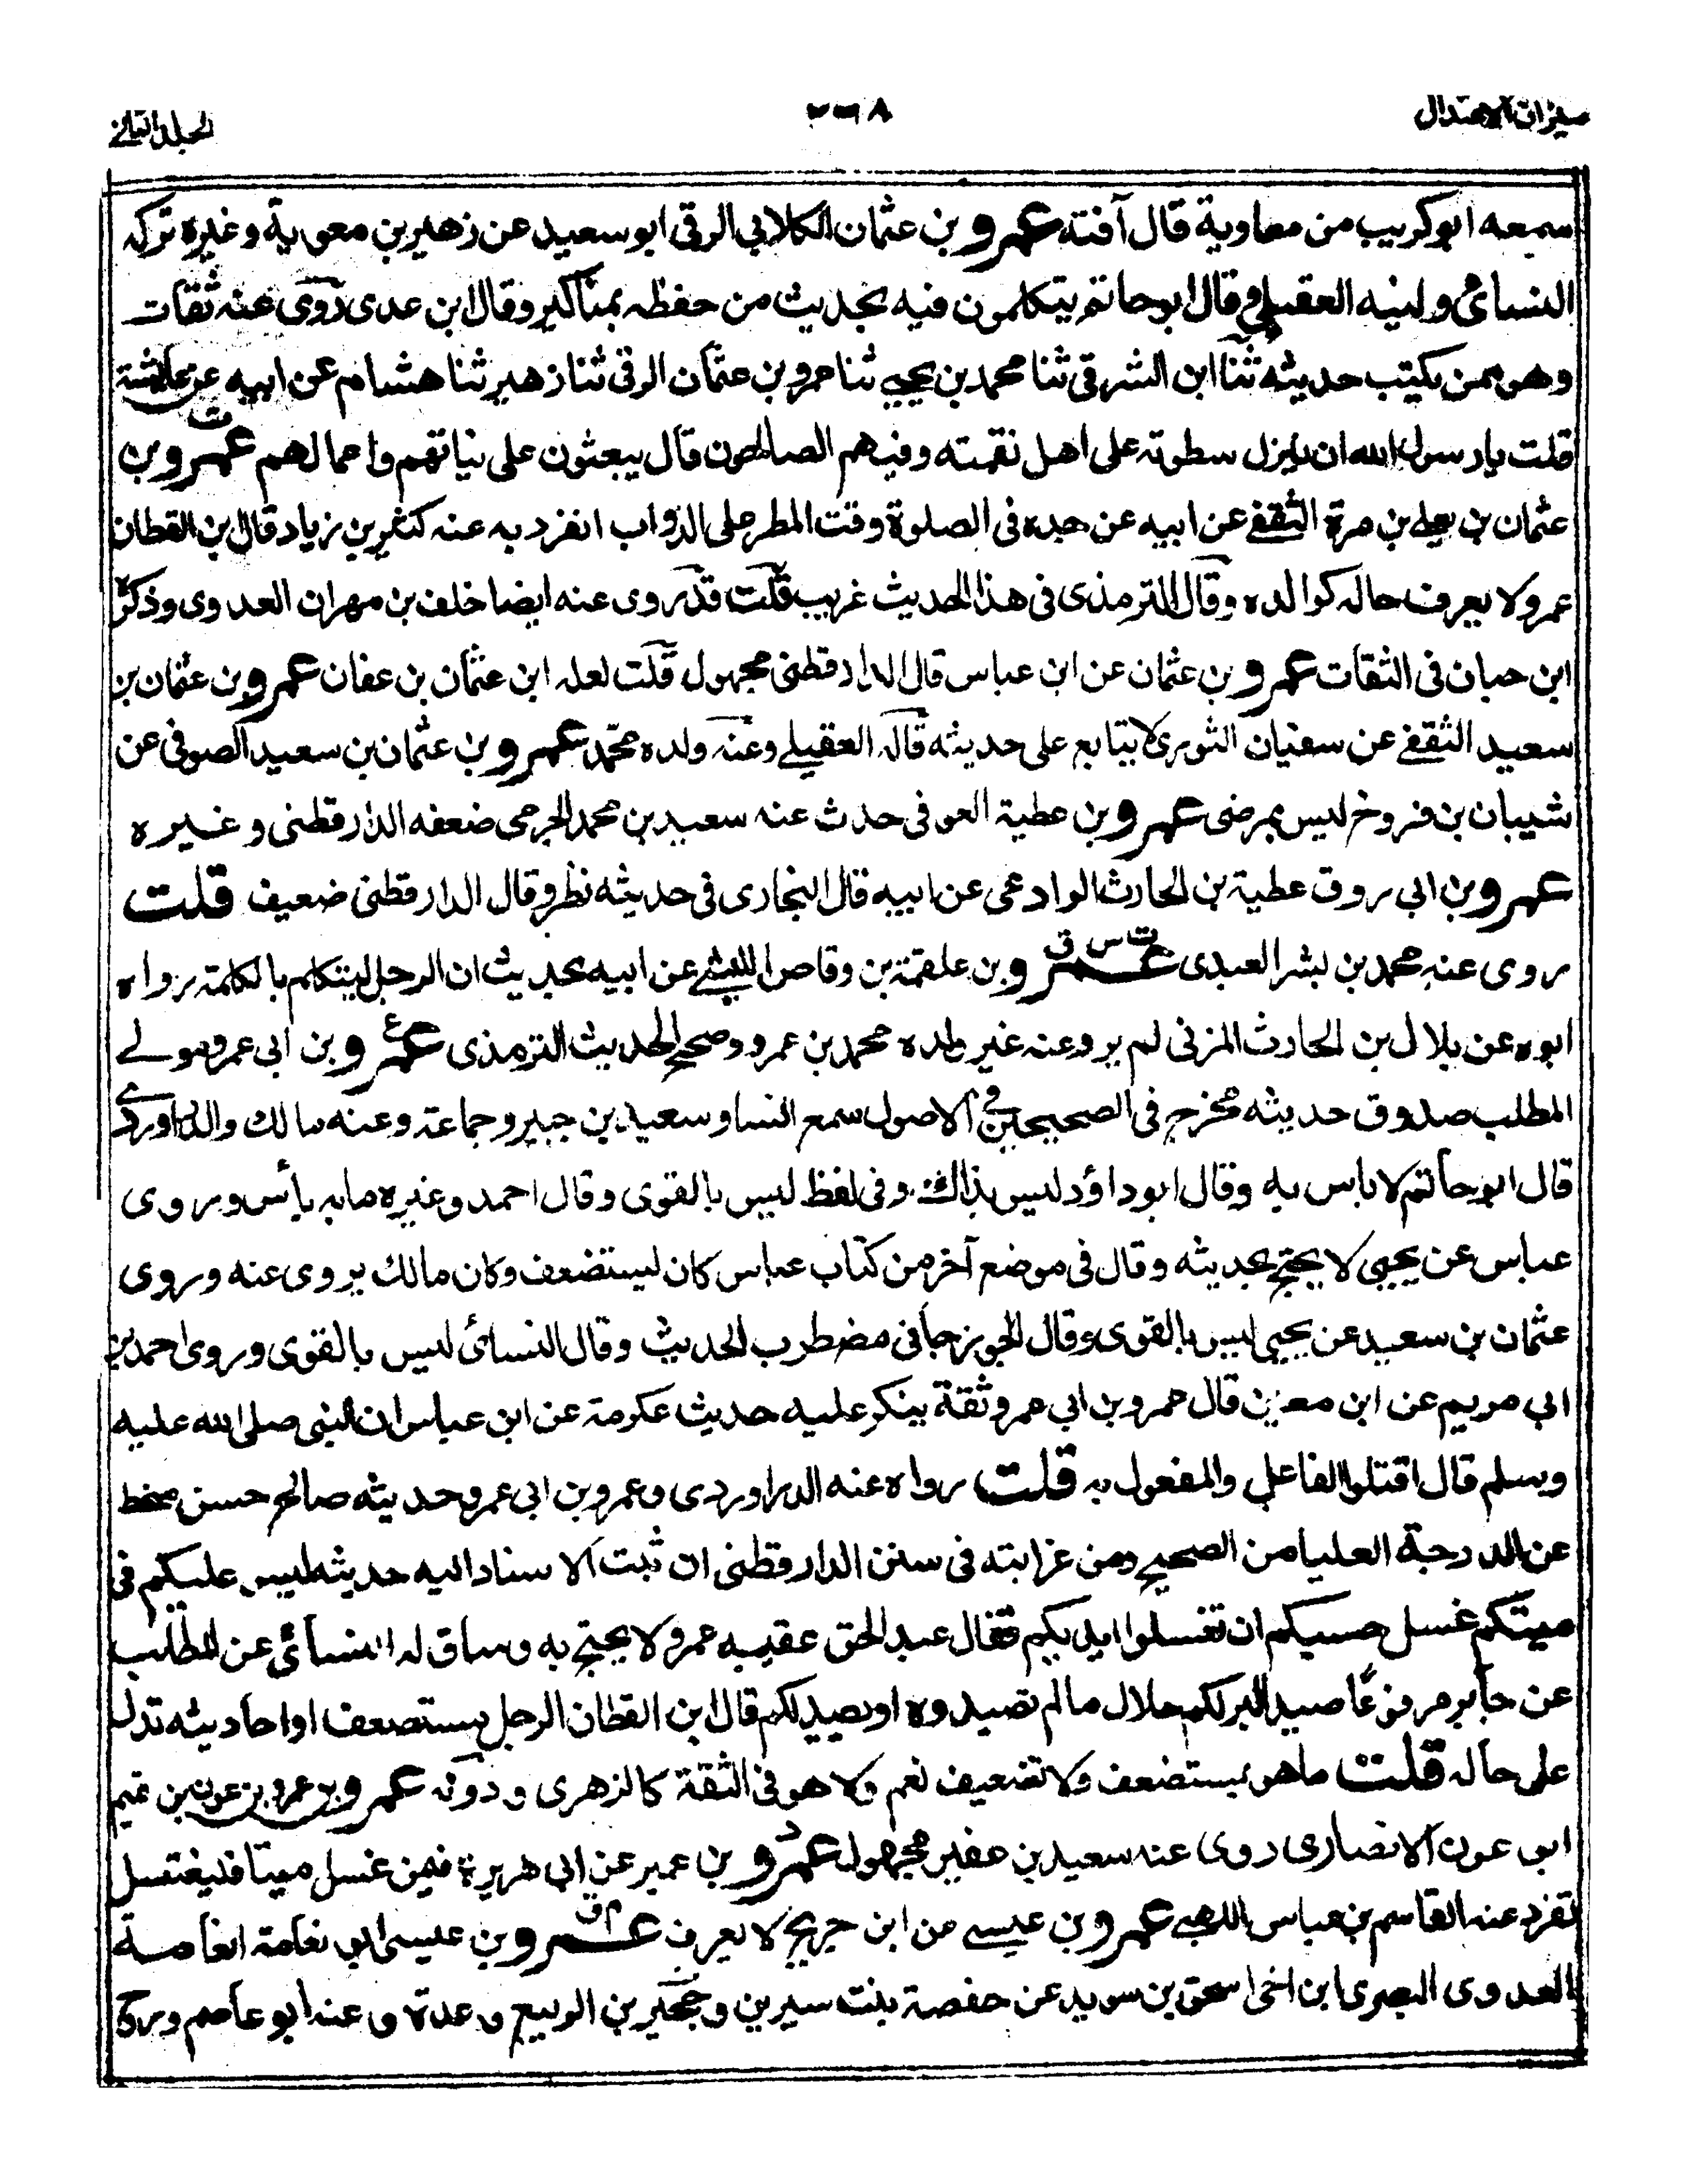 ميزان الاعتدال
الجلد الثاني
سمعه ابوكريب من معاوية قال آفته عمرو بن عثمان الكلابي الرقى ابو سعيد عن زهير بن معوية وغيره تركه
النسائي ولينه العقيلي وقال ابو حاتم يتكلمون فيه يحديث من حفظه بمناكير وقال ابن عدى روى عنه ثقات
وهو ممن يكتب حديثه ثنا ابن الشرقى ثنا محمد بن يحيى ثنا عمرو بن عثمان الرقى ثنا زهير ثنا هشام عن ابيه عن عائشة
قلت يا رسول الله ان الله ينزل سطوته على اهل نقمته وفيهم الصالحون قال يبعثون على نياتهم واعمالهم عمرو بن
عثمان بن يعلى بن مرة الثقفى عن ابيه عن جده فى الصلوة وقت المطر على الدواب انفرد به عنه كثير بن زياد قال بن القطان
عمرو لا يعرف حاله كوالده وقال الترمذى فى هذا الحديث غريب قلت قد روى عنه ايضا خلف بن مهران العدوى وذكره
ابن حبان فى الثقات عمرو بن عثمان عن ابن عباس قال الدارقطنى مجهول قلت لعله ابن عثمان بن عفان عمرو بن عثمان بن
سعيد الثقفى عن سفيان الثورى لا يتابع على حديثه قاله العقيلى وعنه ولده محمد عمرو بن عثمان بن سعيد الصوفى عن
شيبان بن فروخ ليس بمرضى عمرو بن عطية العوفى حدث عنه سعيد بن محمد الجرمى ضعفه الدارقطنى وغيره
عمرو بن ابي روق عطية بن الحارث الوادعى عن ابيه قال البخارى فى حديثه نظر وقال الدارقطنى ضعيف قلت
روى عنه محمد بن بشر العبدى ت س ق عمرو بن علقمة بن وقاص الليثى عن ابيه بحديث ان الرجل ليتكلم بالكلمة رواه
ابوه عن بلال بن الحارث المزنى لم يرو عنه غير ولده محمد بن عمرو وصحح الحديث الترمذى ع عمرو بن ابى عمرو مولى
المطلب صدوق حديثه مخرج فى الصحيحين فى الاصول سمع انسا وسعيد بن جبير وجماعة وعنه مالك والدراوردى
قال ابو حاتم لا باس به وقال ابو داؤد ليس بذاك وفى لفظ ليس بالقوى وقال احمد وغيره ما به بأس وروى
عباس عن يحيى لا يحتج بحديثه وقال فى موضع آخر من كتاب عباس كان يستضعف وكان مالك يروى عنه وروى
عثمان بن سعيد عن يحيى ليس بالقوى وقال الجوزجانى مضطرب الحديث وقال النسائى ليس بالقوى وروى احمد بن
ابي مريم عن ابن معين قال عمرو بن ابي عمرو ثقة ينكر عليه حديث عكرمة عن ابن عباس ان النبى صلى الله عليه
وسلم قال اقتلوا الفاعل والمفعول به قلت رواه عنه الدراوردى وعمرو بن ابى عمرو حديثه صالح حسن منحط
عن الدرجة العليا من الصحيح ومن غرابته فى سنن الدارقطنى ان ثبت الاسناد اليه حديثه ليس عليكم فى
ميتكم غسل حسبكم ان تغسلوا ايديكم فقال عبد الحق عقيبه عمرو لا يحتج به وساق له النسائى عن المطلب
عن جابر مرفوعًا صيد البر لكم حلال ما لم تصيدوه او يصيد لكم قال ابن القطان الرجل يستضعف او احاديثه تدل
على حاله قلت ما هو بمستضعف ولا تضعيف نعم ولا هو فى الثقة كالزهرى ودونه عمرو بن عمرو بن عون بن تميم
ابو عون الانصارى روى عنه سعيد بن عفير مجهول د عمرو بن عمير عن ابى هريرة فيمن غسل ميتا فليغتسل
تفرد عنه القاسم بن عباس اللهبى عمرو بن عيسى عن ابن جريج لا يعرف م ق عمرو بن عيسى ابو نعامة
العدوى البصرى ابن اخى اسحق بن سويد عن حفصة بنت سيرين وحجير بن الربيع وعدة وعنه ابو عاصم وروح